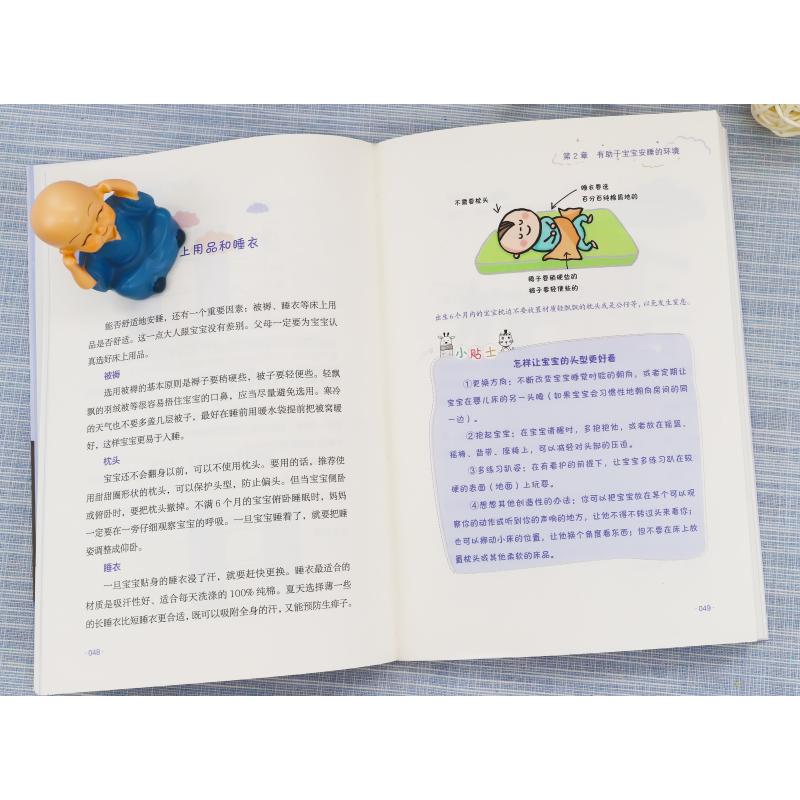 上用品和睡衣
能否舒适地安睡，还有一个重要因素：被褥、睡衣等床上用
品是否舒适。这一点大人跟宝宝没有差别。父母一定要为宝宝认
真选好床上用品。
被褥
选用被褥的基本原则是褥子要稍硬些，被子要轻便些。轻飘
飘的羽绒被等很容易捂住宝宝的口鼻，应当尽量避免选用。寒冷
的天气也不要多盖几层被子，最好在睡前用暖水袋提前把被窝暖
好，这样宝宝更易于入睡。
枕头
宝宝还不会翻身以前，可以不使用枕头。要用的话，推荐使
用甜甜圈形状的枕头，可以保护头型，防止偏头。但当宝宝侧卧
或俯卧时，要把枕头撤掉。不满6个月的宝宝俯卧睡眠时，妈妈
一定要在一旁仔细观察宝宝的呼吸。一旦宝宝睡着了，就要把睡
姿调整成仰卧。
睡衣
一旦宝宝贴身的睡衣浸了汗，就要赶快更换。睡衣最适合的
材质是吸汗性好、适合每天洗涤的100%纯棉。夏天选择薄一些
的长睡衣比短睡衣更合适，既可以吸附全身的汗，又能预防生痱子。
·048·
第2章 有助于宝宝安睡的环境
不需要枕头
睡衣要选
百分百纯棉质地的
褥子要稍硬些的
被子要轻便些的
出生6个月内的宝宝枕边不要放置材质轻飘飘的枕头或是公仔等，以免发生窒息。
小贴士
怎样让宝宝的头型更好看
①更换方向：不断改变宝宝睡觉时脸的朝向，或者定期让
宝宝在婴儿床的另一头睡（如果宝宝会习惯性地朝向房间的同
一边）。
②抱起宝宝：在宝宝清醒时，多抱抱他，或者放在摇篮、
摇椅、背带、座椅上，可以减轻对头部的压迫。
③多练习趴姿：在有看护的前提下，让宝宝多练习趴在较
硬的表面（地面）上玩耍。
④想想其他创造性的办法：你可以把宝宝放在某个可以观
察你的动作或听到你的声响的地方，让他不得不转过头来看你；
也可以挪动小床的位置，让他换个角度看东西；但不要在床上放
置枕头或其他柔软的床品。
·049·